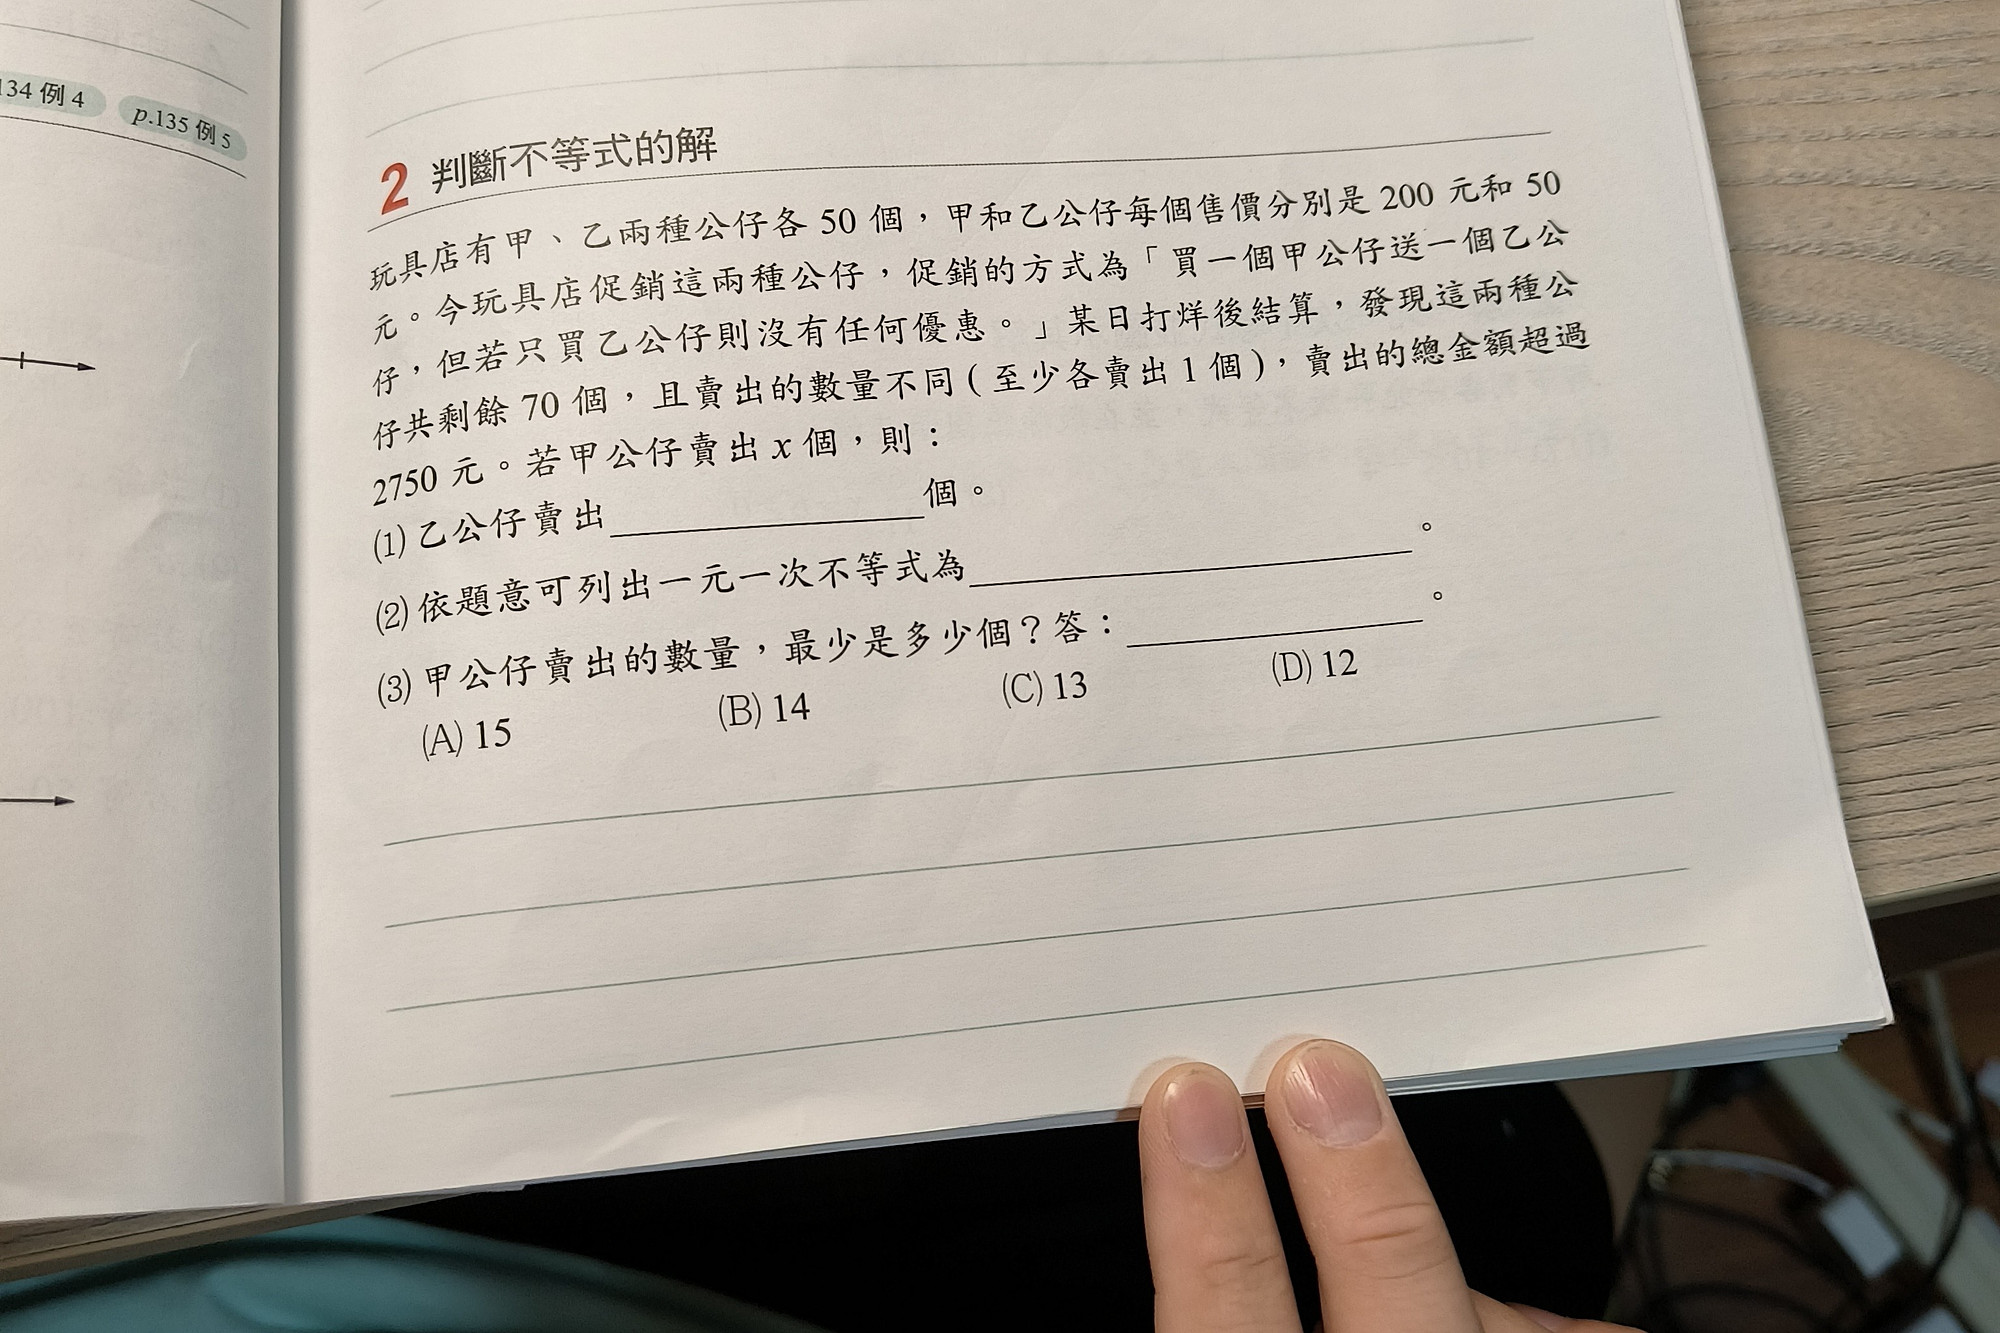 134 例 4
p.135 例 5
2 判斷不等式的解
玩具店有甲、乙兩種公仔各 50 個,甲和乙公仔每個售價分別是 200 元和 50
元。今玩具店促銷這兩種公仔,促銷的方式為「買一個甲公仔送一個乙公
仔,但若只買乙公仔則沒有任何優惠。」某日打烊後結算,發現這兩種公
仔共剩餘 70 個,且賣出的數量不同(至少各賣出 1 個),賣出的總金額超過
2750 元。若甲公仔賣出 x 個,則:
(1) 乙公仔賣出 個。
(2) 依題意可列出一元一次不等式為 。
(3) 甲公仔賣出的數量,最少是多少個?答: 。
(A) 15 (B) 14 (C) 13 (D) 12